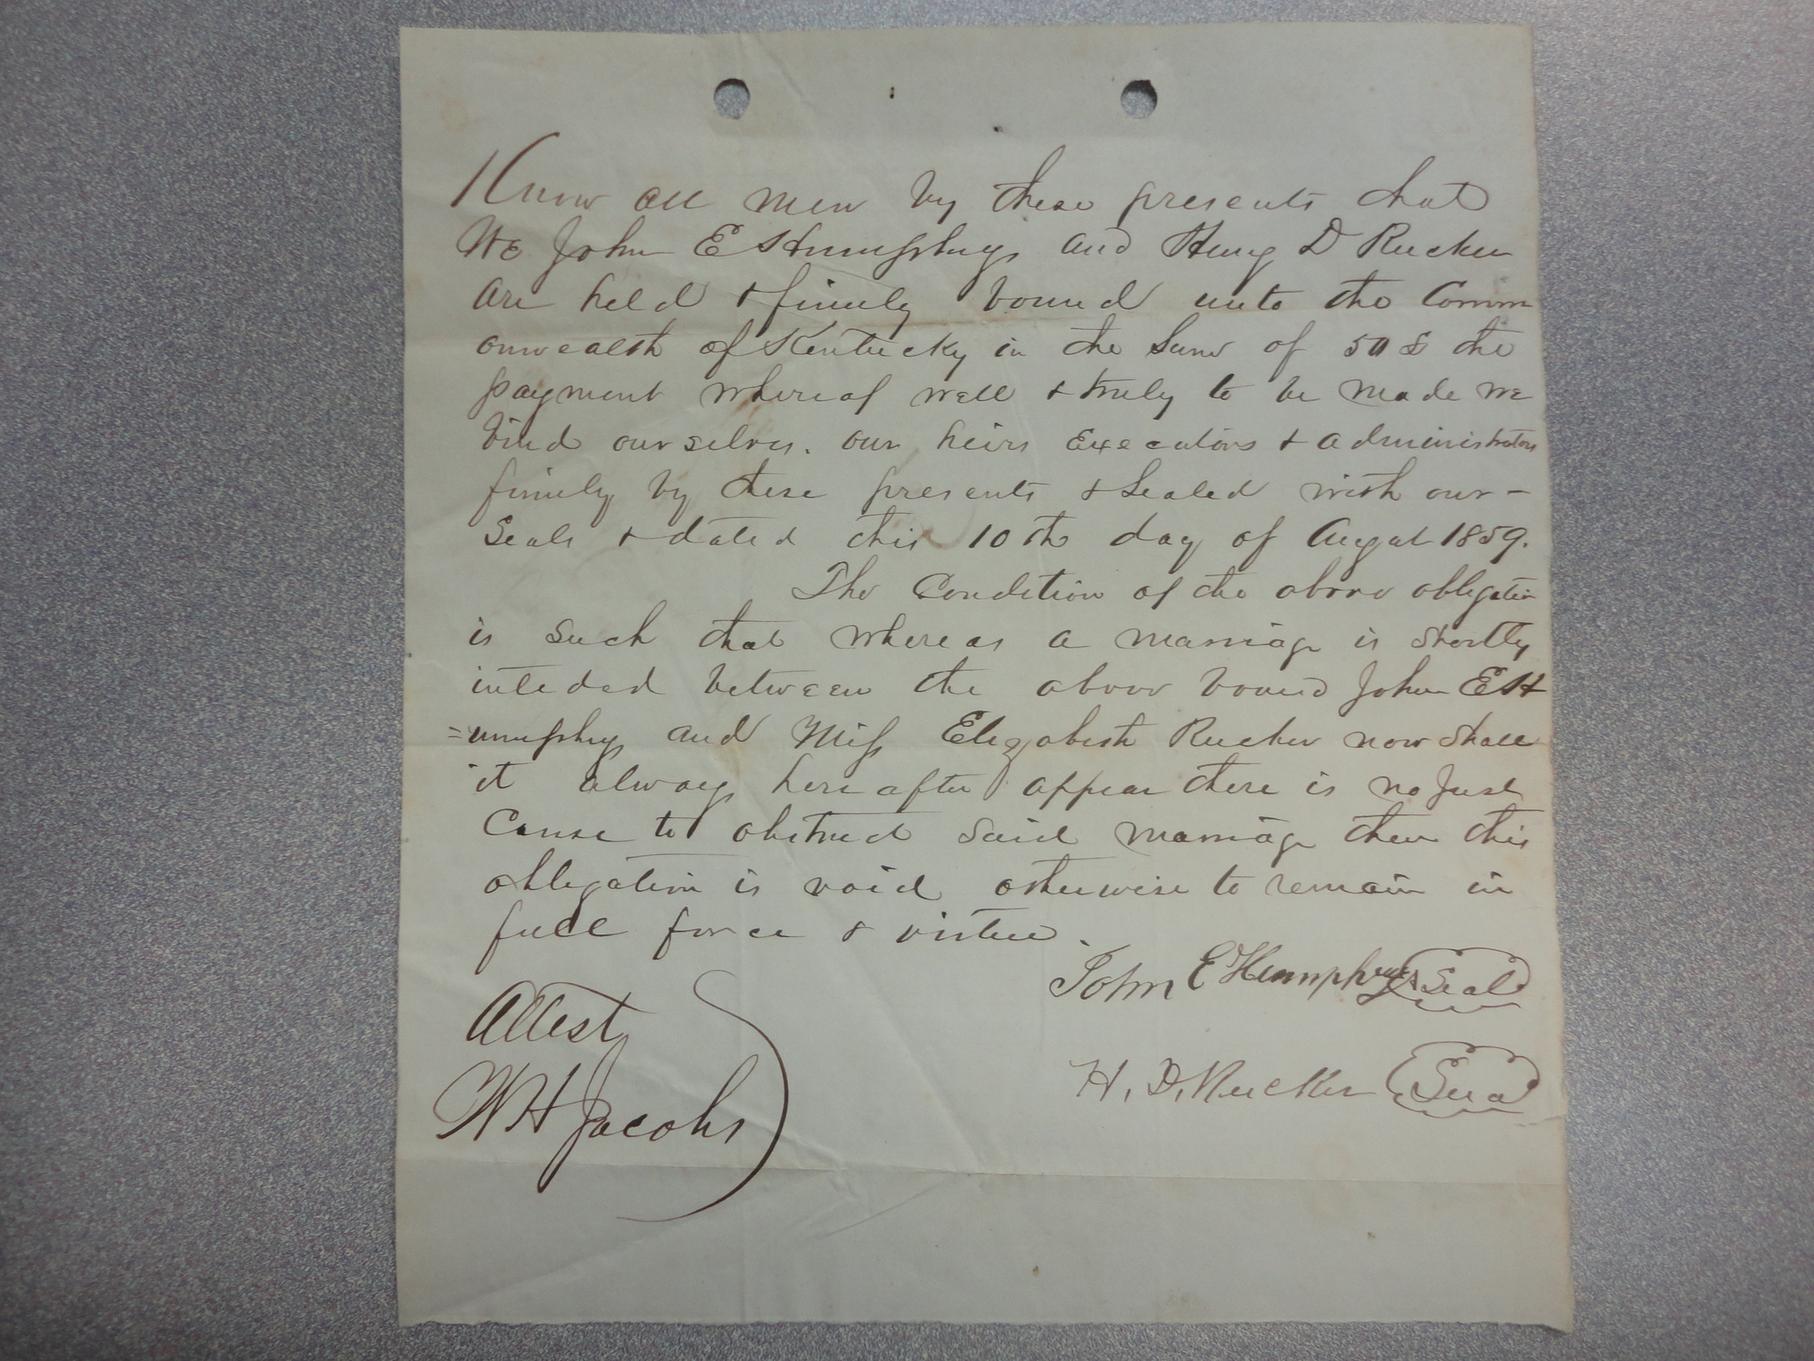 Know all men by these presents that
We John E Humphrys and Henry D Rucker
are held & firmly bound unto the Comm
onwealth of Kentucky in the Sum of 50£ the
payment whereof well & truly to be made we
bind ourselves. our heirs Executors & administrators
firmly by these presents & Sealed with our -
Seals & dated this 10th day of August 1859.
The Condition of the above obligation
is such that whereas a marriage is shortly
inteded between the above bound John E H
=umphrys and Miss Elizabeth Rucker now shall
it always hereafter appear there is no Just
Cause to obstruct said marriage then this
obligation is void otherwise to remain in
full force & virtue.
John E Humphreys Seal
Attest
H. D. Rucker Seal
WH Jacobs